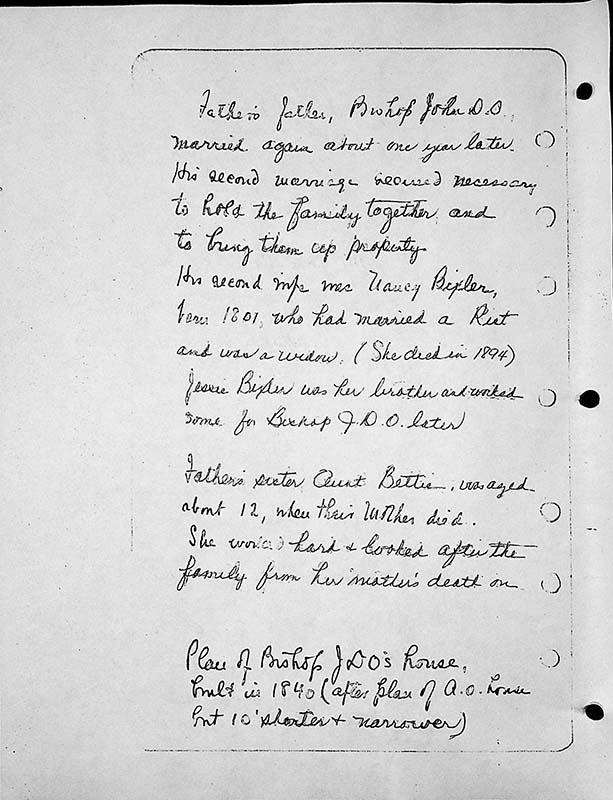 Father's father, Bishop John D.O.,
married again about one year later.
His second marriage seemed necessary
to hold the family together and
to bring them up properly
His second wife was Nancy Bixler,
born 1801, who had married a Rist
and was a widow. (She died in 1894)
Jessie Bixler was her brother and worked
some for Bishop J.D.O. later
Father's sister Aunt Bettie, was aged
about 12, when their Mother died.
She worked hard & looked after the
family from her mother's death on
Plan of Bishop JDO's house,
built in 1840 (after plan of A.O. house
but 10' shorter & narrower)